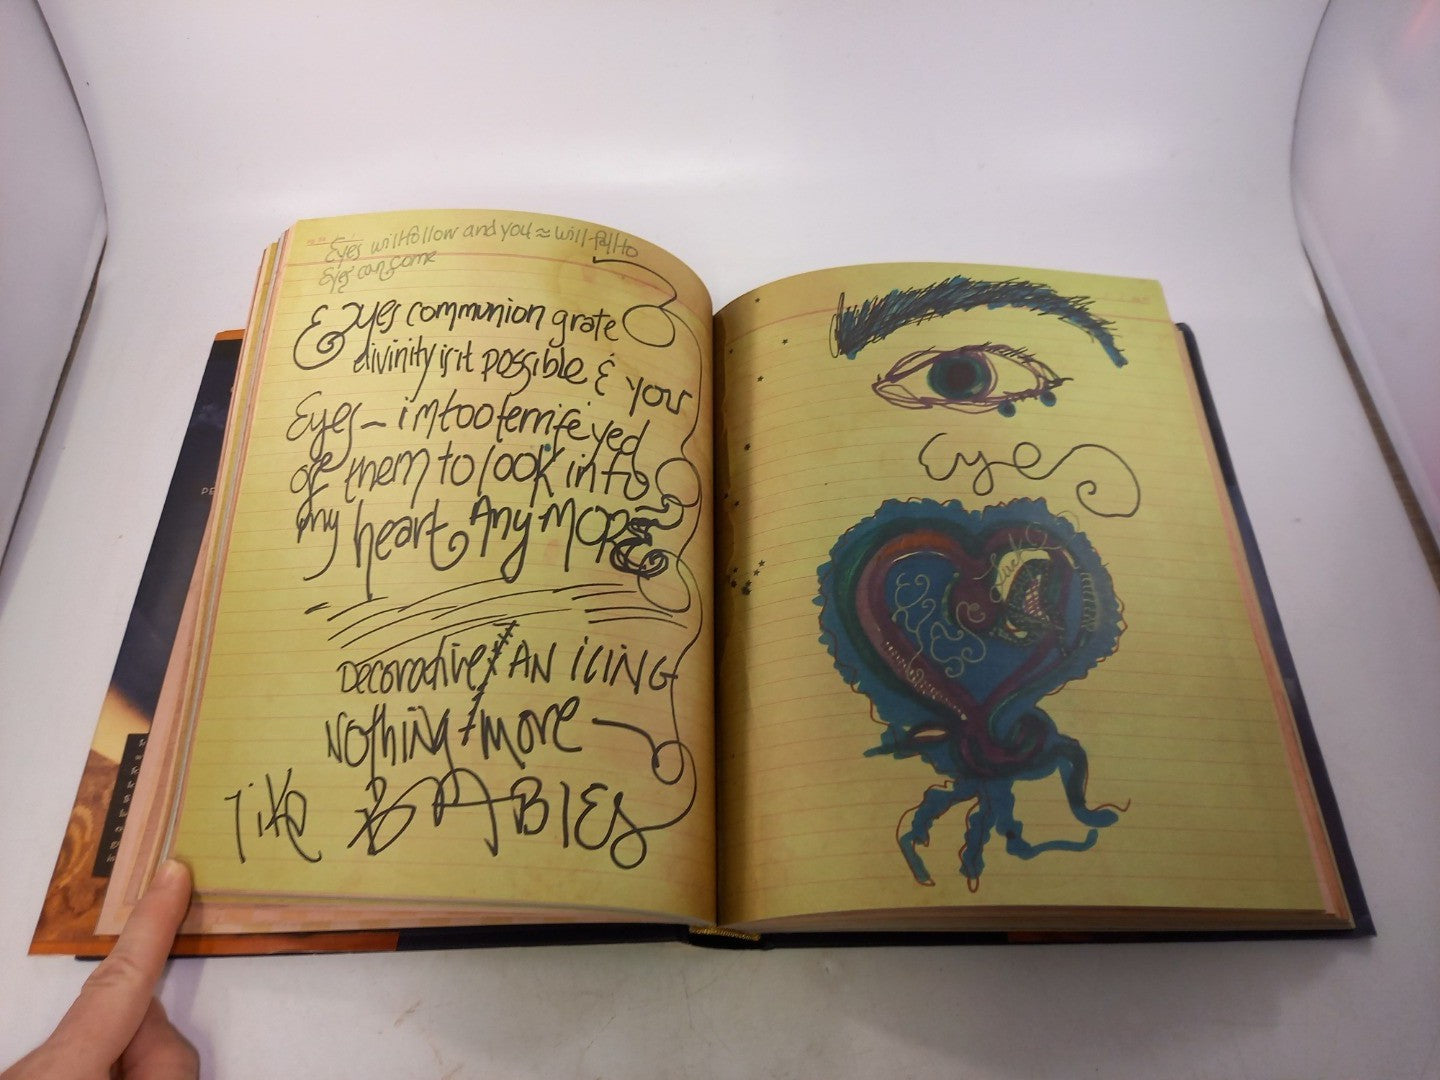 Eyes will follow and you ≈ will fall to
Eyes can come
& Eyes communion grate
divinity is it possible & your
Eyes – im too terrifeyed
of them to look into
my heart Any MORE
DECORATIVE AN ICING
NOthiNg + MORE
like BABIES
Eye
Lack